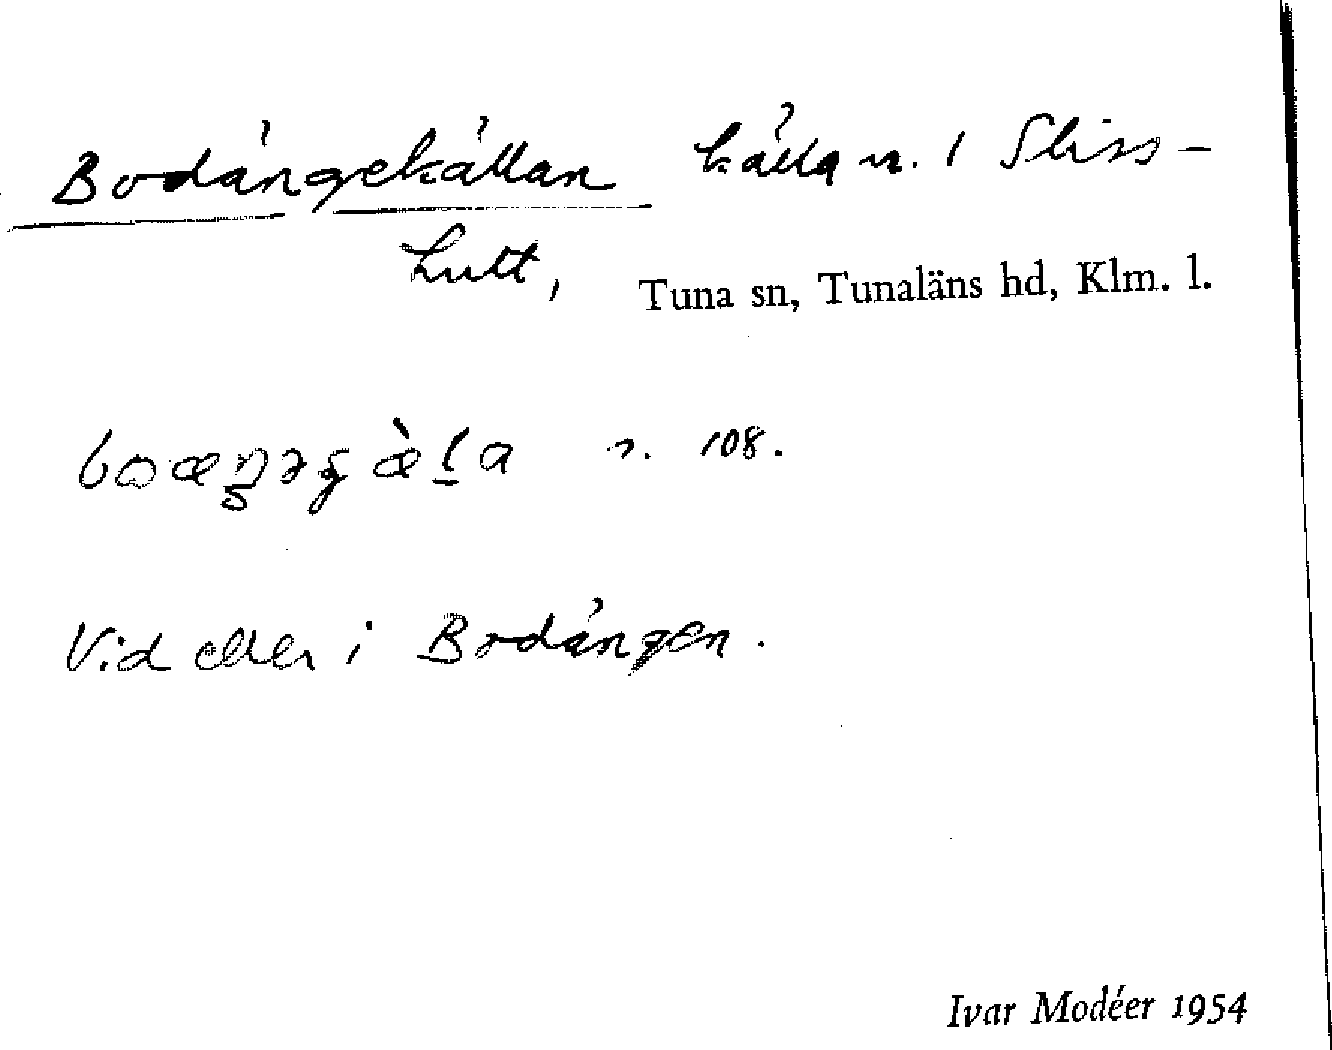 Bodängekällan källa n. / Sliss-
hult,
Tuna sn, Tunaläns hd, Klm. l.
108.
Vid eller i Bodängen.
Ivar Modéer 1954